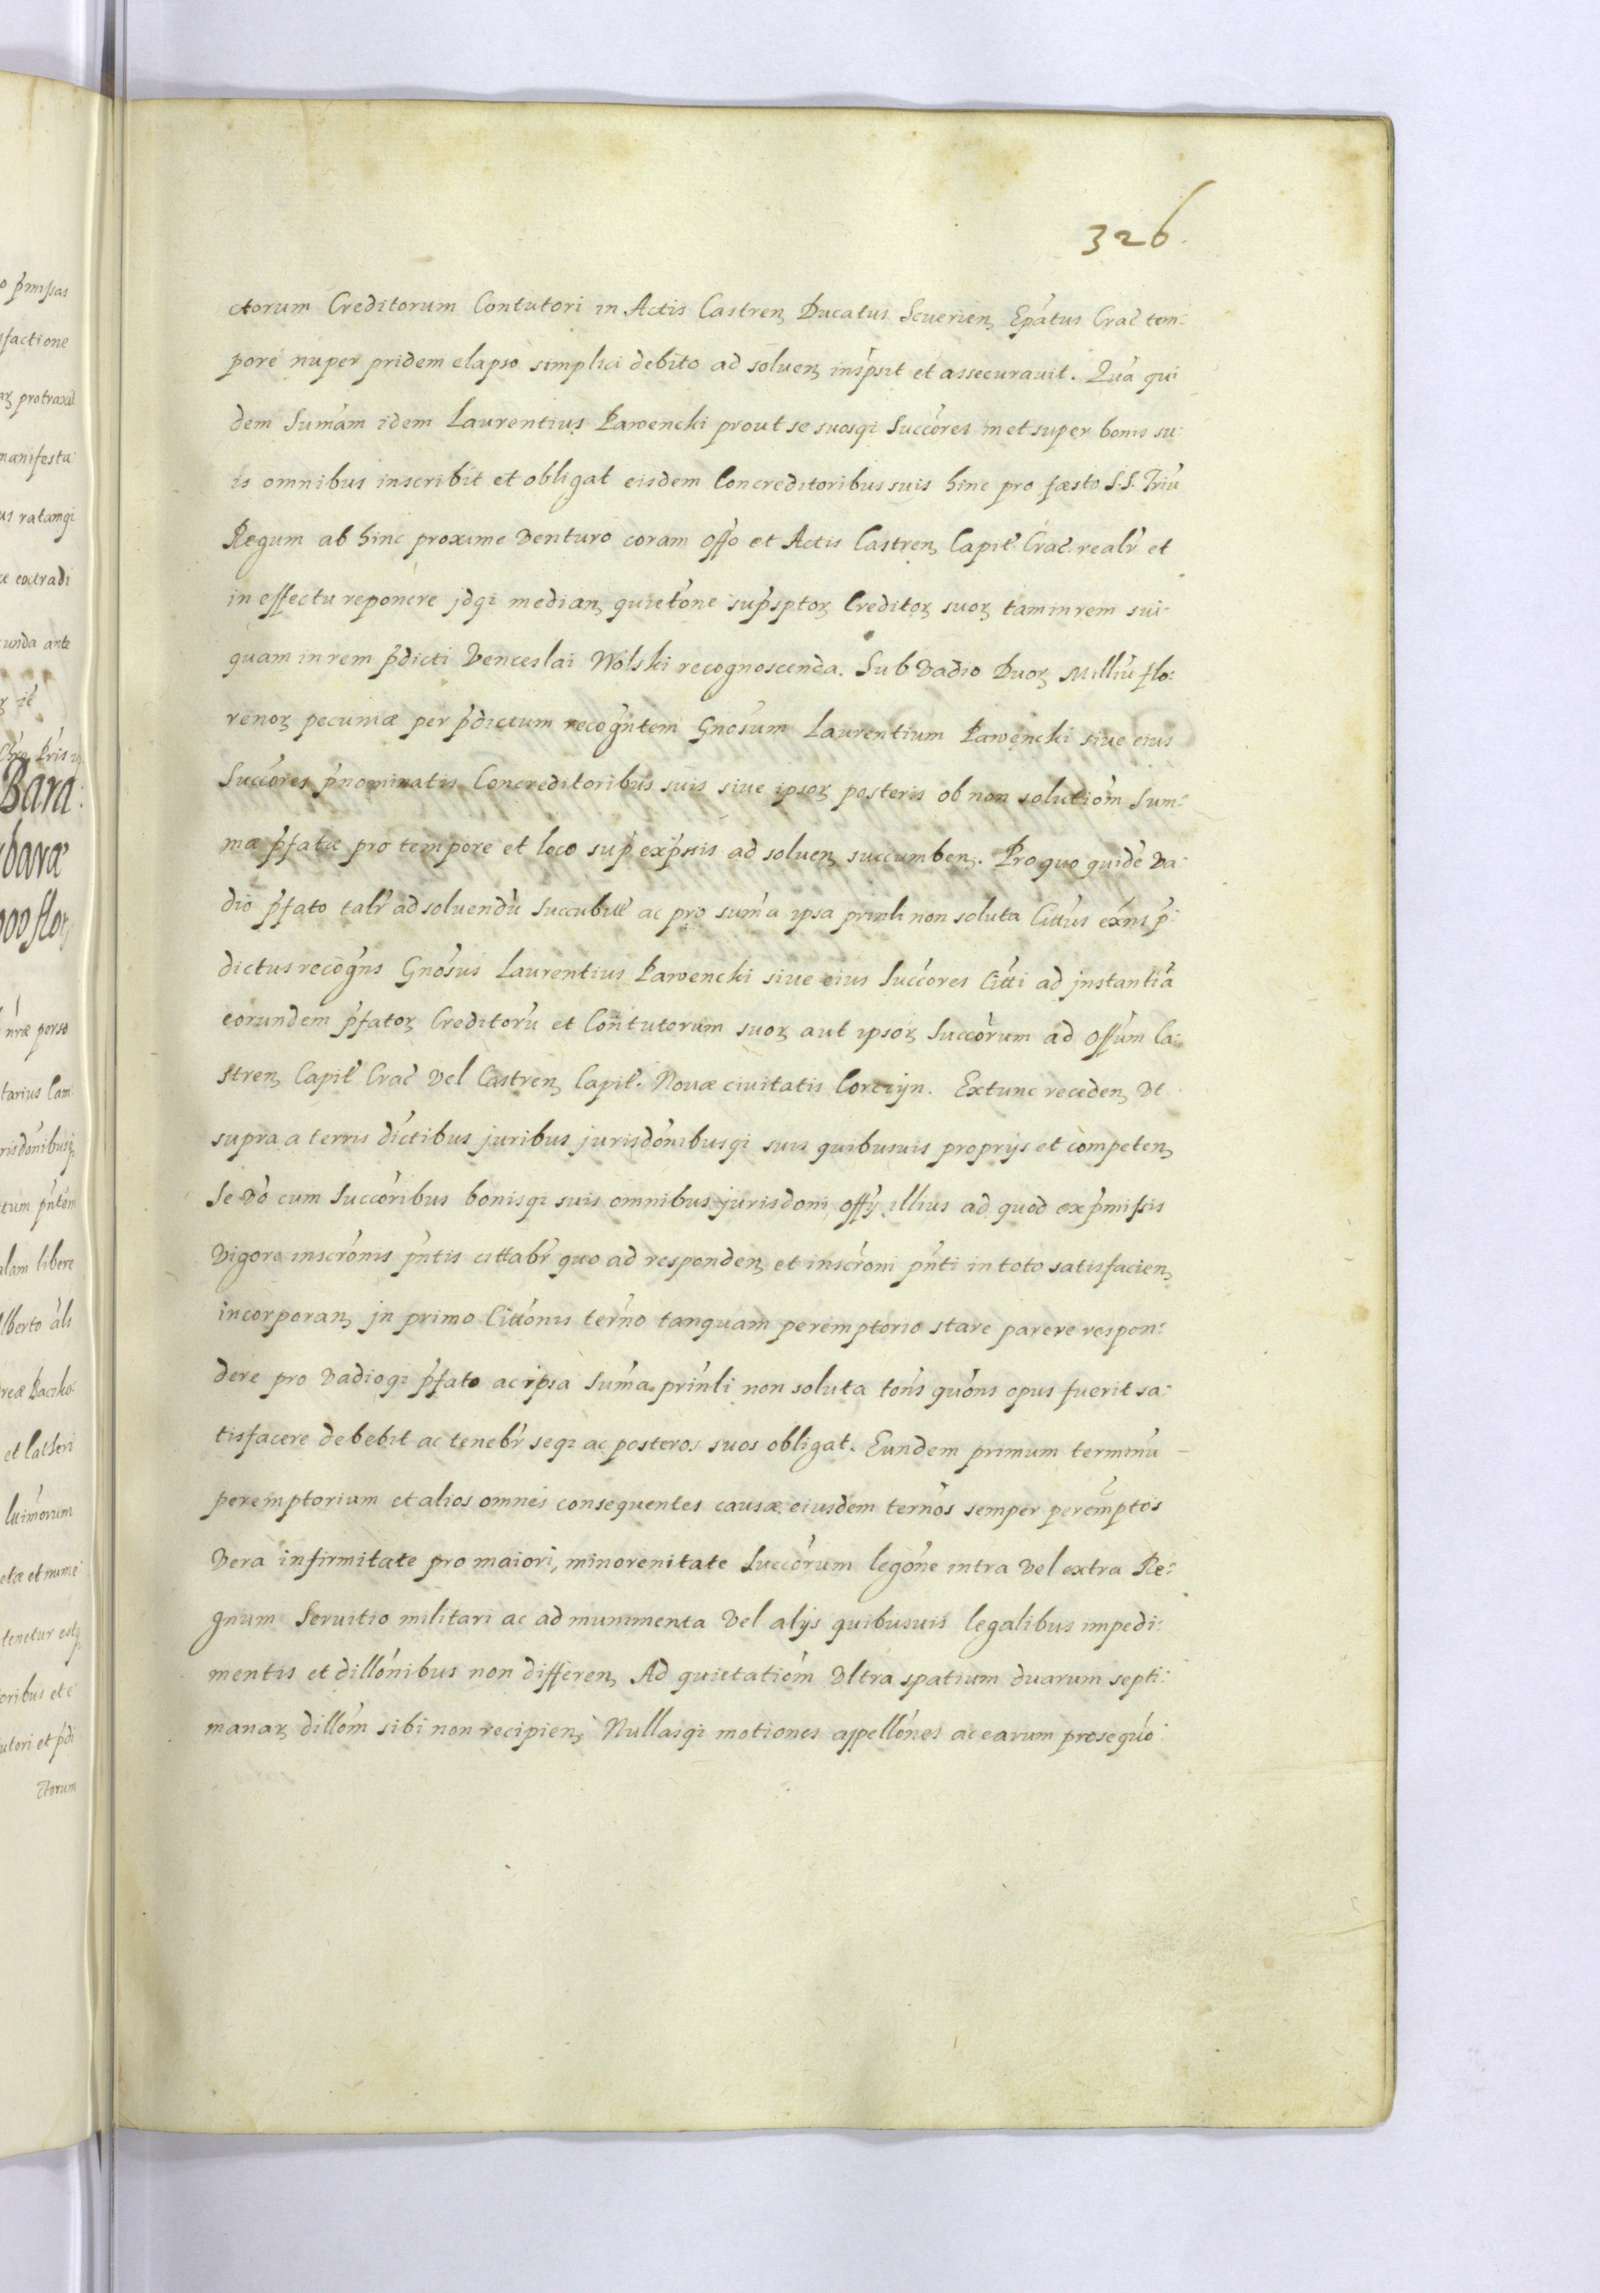 326.
ctorum Creditorum Contutori in Actis Castren Ducatus Seuerien Epátus Crac̄ tem:
pore nuper pridem elapso simplici debito ad soluen insp̄sit et assecurauit. Quā qui
dem Sum̄am idem Laurentius Pawencki prout se suosqı Succōres in et super bonis su:
is omnibus inscribit et obligat eisdem Concreditoribus suis hinc pro fæsto S.S. Triū
Regum ab hinc proxime Venturo coram Offo et Actis Castren Capit̄ Crac̄ realr̄ et
in effectu reponere jdqı median quietōne sup̄sptoꝝ Creditoꝝ suoꝝ tam in rem sui
quam in rem p̄dicti Venceslai Wolski recognoscenda. Sub Vadio Duoꝝ Milliū flo:
renoꝝ pecuniæ per p̄dictum recogn̄tem Gnōsum Laurentium Pawencki siue eius
Succōres p̄nominatis Concreditoribus suis siue ipsoꝝ posteris ob non solutiōm Sum:
mæ p̄fatæ pro tempore et loco sup̄ exp̄ssis ad soluen succumben. Pro quo quidē Va:
dio p̄fato talr̄ ad soluendū Succubit̄ ac pro sum̄a ipsa prinli non soluta Cittūs exn̄s p̄:
dictus recogn̄s Gnōsus Laurentius Pawencki siue eius Succōres Citti ad jnstantiā
eorundem p̄fatoꝝ Creditorū et Contutorum suoꝝ aut ipsoꝝ Succōrum ad Offum Ca:
stren Capit̄ Crac̄ Vel Castren Capit̄. Nouæ ciuitatis Corczyn. Extunc receden Vt
supra a terris dictibus juribus jurisdōnibusqı suis quibusuis proprijs et competen
Se Vō cum Succōribus bonisqı suis omnibus jurisdoni offy illius ad quod ex p̄missis
Vigore inscrōnis pn̄tis cittabr̄ quo ad responden et inscrōni pn̄ti in toto satisfacien
incorporan jn primo Cittōnis tern̄o tanquam peremptorio stare parere respon:
dere pro Vadioqı p̄fato ac ipsa Sum̄a prinli non soluta tōns quōns opus fuerit sa:
tisfacere debebit ac tenebr̄ seqı ac posteros suos obligat. Eundem primum terminū
peremptorium et alios omnes consequentes causæ eiusdem tern̄os semper peremptōs
Vera infirmitate pro maiori, minorenitate Succōrum legōne intra Vel extra Re:
gnum Seruitio militari ac ad munimenta Vel alijs quibusuis legalibus impedi:
mentis et dillōnibus non differen Ad quietatiōm Vltra spatium duarum septi:
manaꝝ dillōm sibi non recipien Nullasqı motiones appellōnes ac earum prosequō: